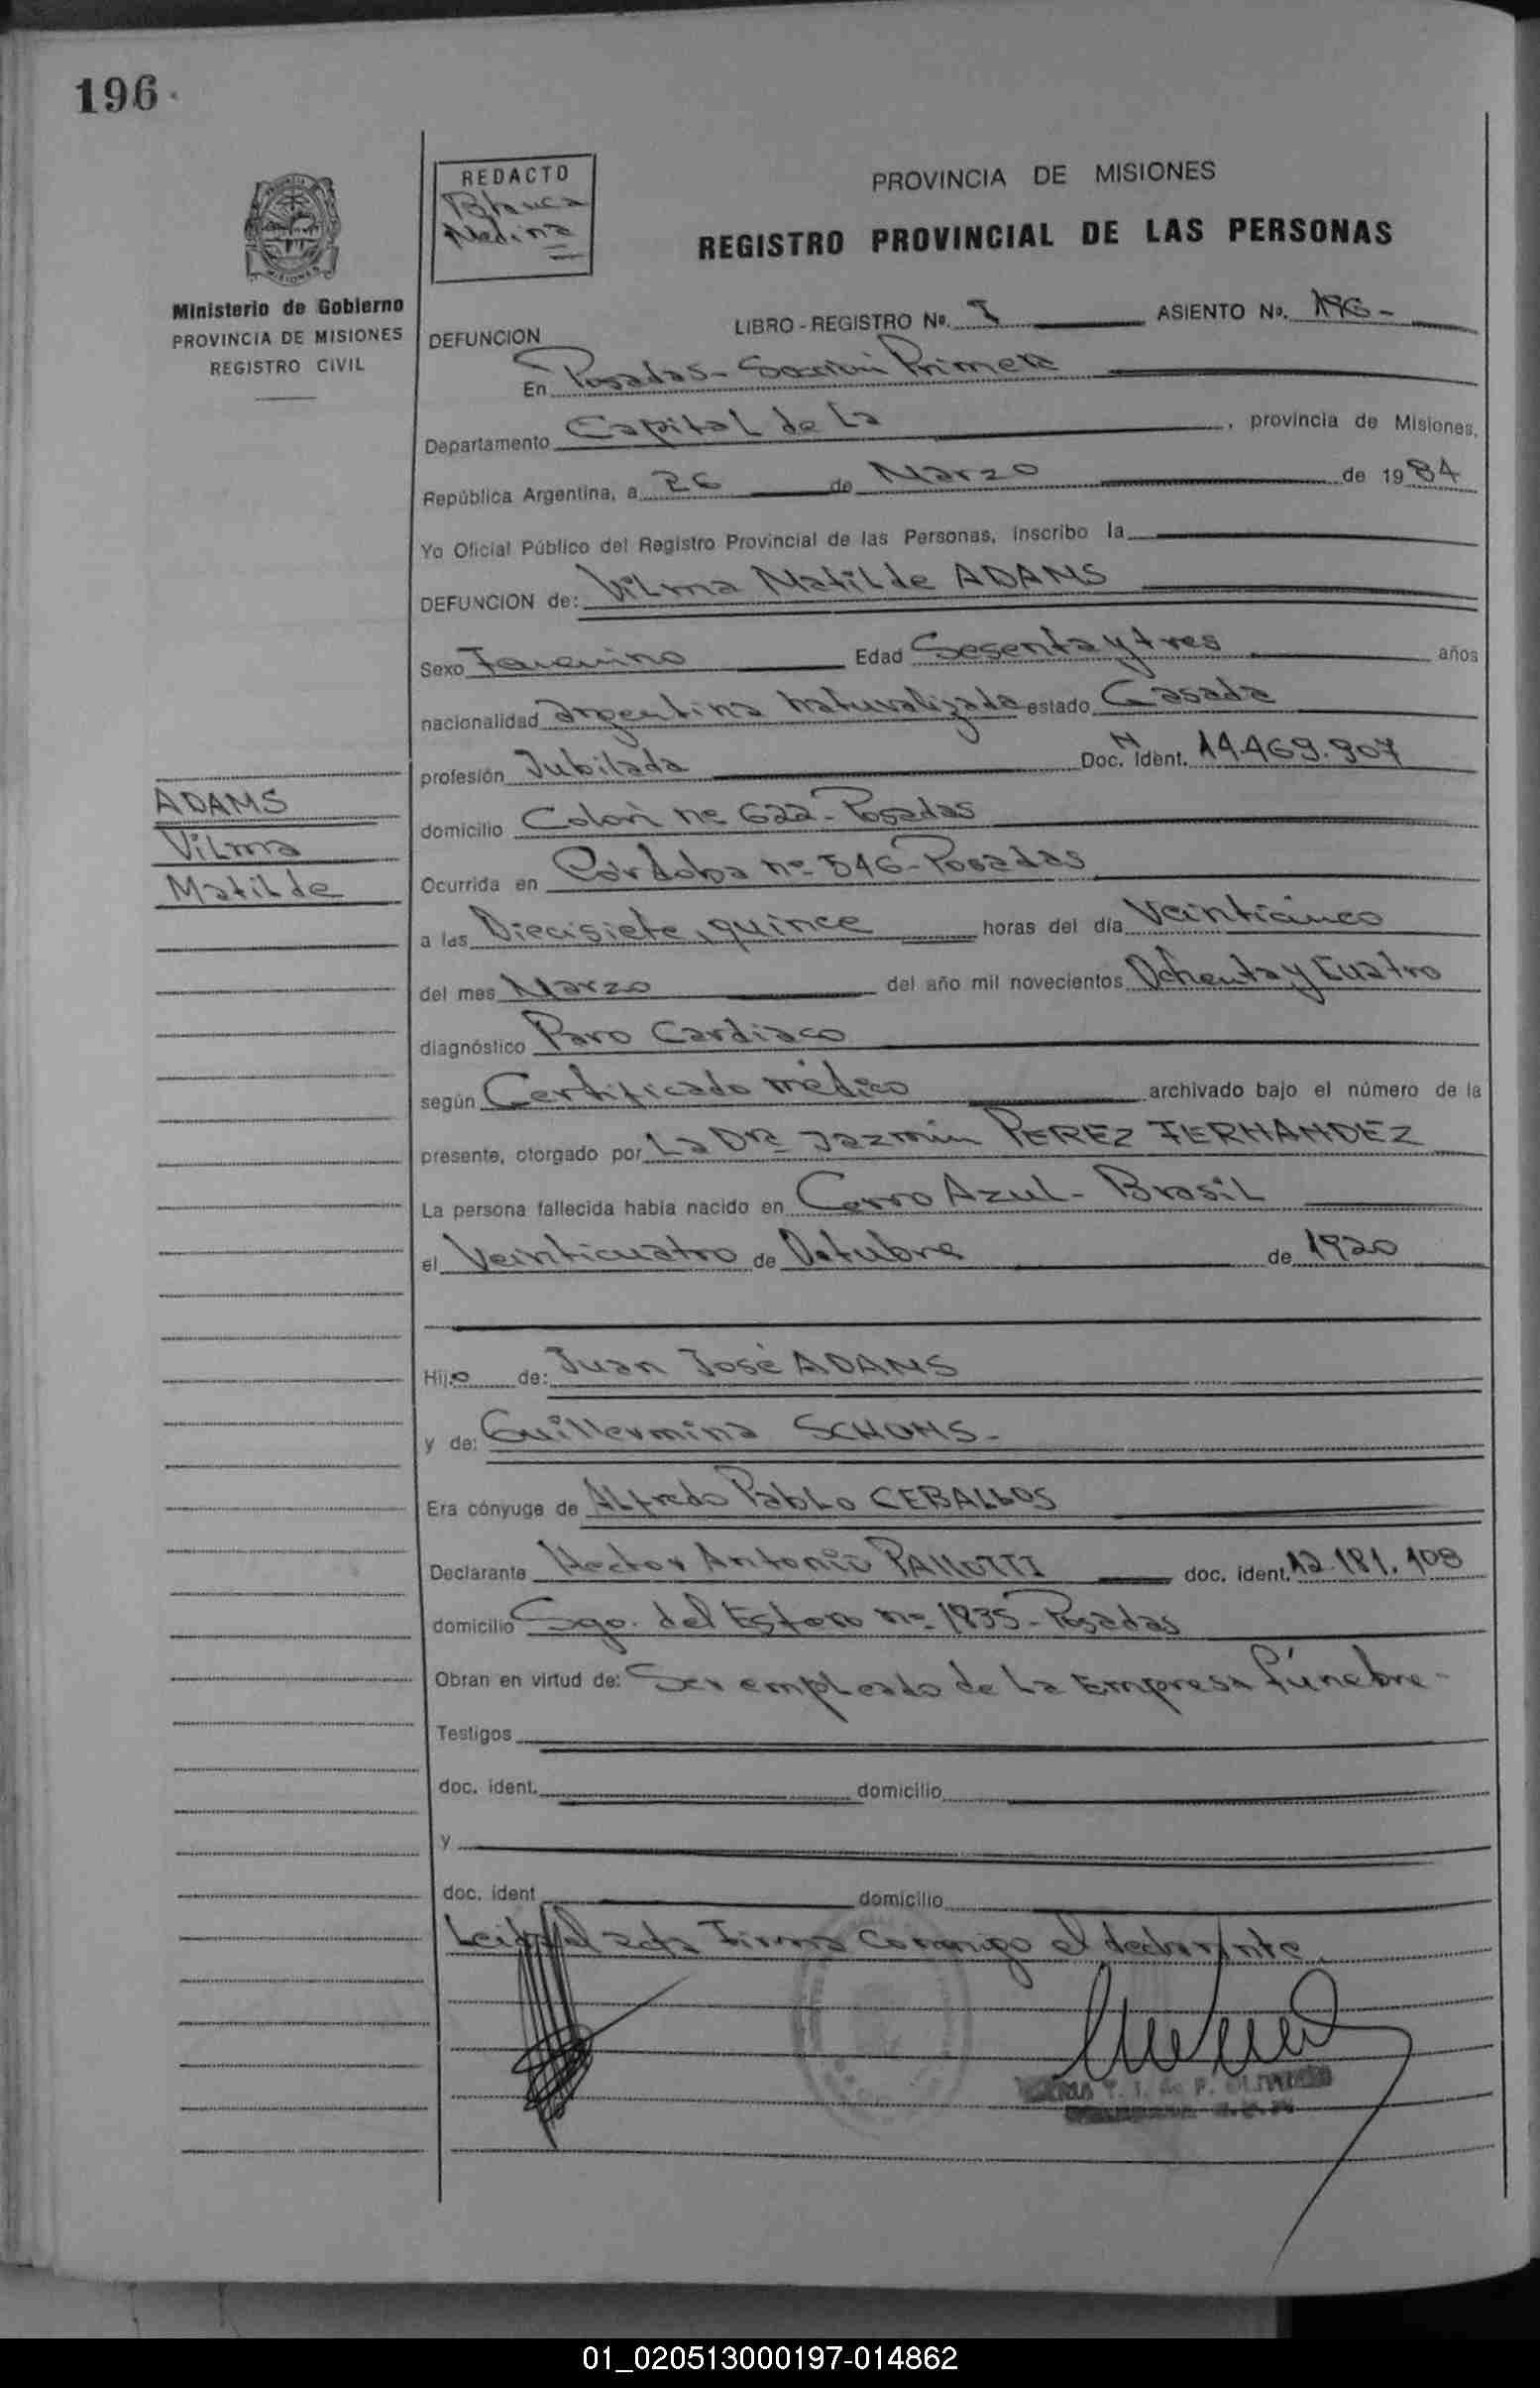 196
REDACTO
Blanca
Medina
PROVINCIA DE MISIONES
REGISTRO PROVINCIAL DE LAS PERSONAS
Ministerio de Gobierno
PROVINCIA DE MISIONES
REGISTRO CIVIL
DEFUNCION
LIBRO - REGISTRO Nº. I ASIENTO Nº. 196 -
En Posadas - Sección Primera
Departamento Capital de La, provincia de Misiones,
República Argentina, a 26 de Marzo de 1984
Yo Oficial Público del Registro Provincial de las Personas, inscribo la
DEFUNCION de: Vilma Matilde ADAMS
Sexo Femenino Edad Sesenta y tres años
nacionalidad argentina naturalizada estado Casada
profesión Jubilada Doc. N ident. 14.469.907
domicilio Colón nº 622 - Posadas
Ocurrida en Córdoba nº 546 - Posadas
a las Diecisiete, quince horas del día Veinticinco
del mes Marzo del año mil novecientos Ochenta y Cuatro
diagnóstico Paro Cardiaco
según Certificado médico archivado bajo el número de la
presente, otorgado por La Dra Jazmín PEREZ FERNANDEZ
La persona fallecida había nacido en Cerro Azul - Brasil
el Veinticuatro de Octubre de 1920
Hijo de: Juan José ADAMS
y de: Guillermina SCHONS -
Era cónyuge de Alfredo Pablo CEBALLOS
Declarante Hector Antonio PALLOTTI doc. ident. 12.181.108
domicilio Sgo. del Estero nº 1835 - Posadas
Obran en virtud de: Ser empleado de La Empresa fúnebre -
Testigos
doc. ident. domicilio
y
doc. ident domicilio
Leida el acta Firma conmigo el declarante
ADAMS
Vilma
Matilde
01_020513000197-014862